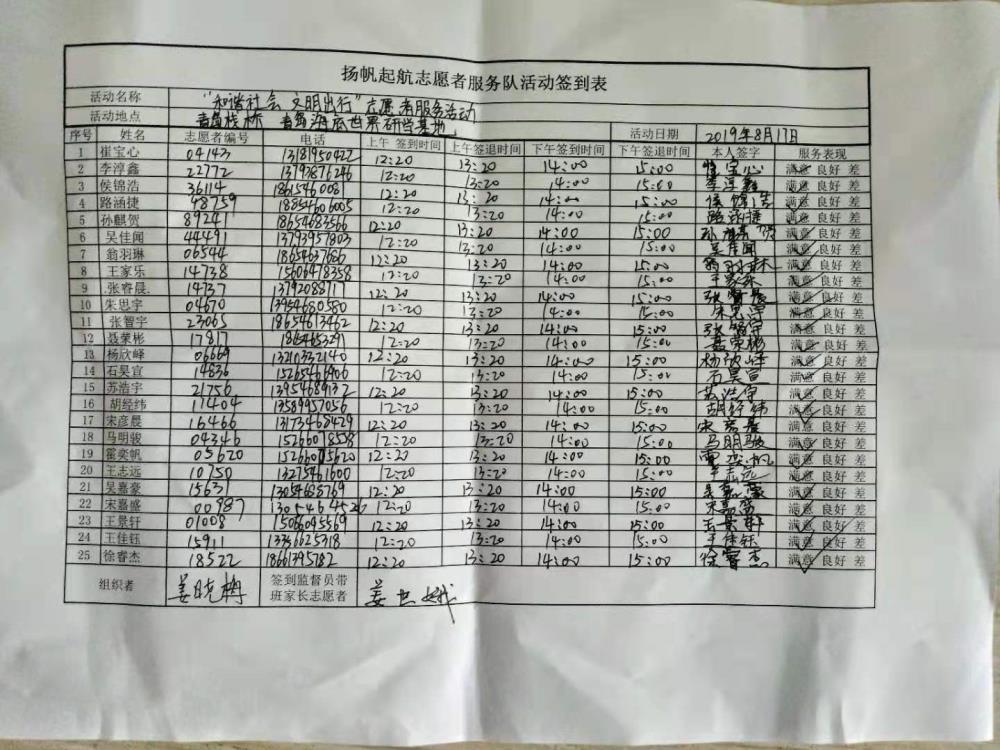 扬帆起航志愿者服务队活动签到表
活动名称 "和谐社会 文明出行"志愿者服务活动
活动地点 青岛栈桥 青岛海底世界研学基地 活动日期 2019年8月17日
序号 姓名 志愿者编号 电话 上午 签到时间 上午签退时间 下午签到时间 下午签退时间 本人签字 服务表现
1 崔宝心 04143 13181950422 12:20 13:20 14:00 15:00 崔宝心 满意 良好 差
2 李淳鑫 22772 13792876246 12:20 13:20 14:00 15:00 李淳鑫 满意 良好 差
3 侯锦浩 36114 12:20 13:20 14:00 15:00 侯锦浩 满意 良好 差
4 路涵捷 48759 18854606005 12:20 13:20 14:00 15:00 路涵捷 满意 良好 差
5 孙麒贺 89241 18654683566 12:20 13:20 14:00 15:00 孙麒贺 满意 良好 差
6 吴佳闻 44491 13793957803 12:20 13:20 14:00 15:00 吴佳闻 满意 良好 差
7 翁羽琳 06544 12:20 13:20 14:00 15:00 翁羽琳 满意 良好 差
8 王家乐 14738 15606478358 12:20 13:20 14:00 15:00 王家乐 满意 良好 差
9 张睿晨 14737 12:20 13:20 14:00 15:00 张睿晨 满意 良好 差
10 朱思宇 04670 13954680580 12:20 13:20 14:00 15:00 朱思宇 满意 良好 差
11 张智宇 23065 18654613462 12:20 13:20 14:00 15:00 张智宇 满意 良好 差
12 聂荣彬 17817 12:20 13:20 14:00 15:00 聂荣彬 满意 良好 差
13 杨欣峰 06669 13210332140 12:20 13:20 14:00 15:00 杨欣峰 满意 良好 差
14 石昊宣 14836 15265466900 12:20 13:20 14:00 15:00 石昊宣 满意 良好 差
15 苏浩宇 21756 13954689132 12:20 13:20 14:00 15:00 苏浩宇 满意 良好 差
16 胡经纬 11404 13589957056 12:20 13:20 14:00 15:00 胡经纬 满意 良好 差
17 宋彦晨 16466 13173465429 12:20 13:20 14:00 15:00 宋彦晨 满意 良好 差
18 马明骏 04346 15266018558 12:20 13:20 14:00 15:00 马明骏 满意 良好 差
19 霍奕帆 05620 15266005620 12:20 13:20 14:00 15:00 霍奕帆 满意 良好 差
20 王志远 10750 13275461600 12:20 13:20 14:00 15:00 王志远 满意 良好 差
21 吴嘉豪 15637 13054685769 12:20 13:20 14:00 15:00 吴嘉豪 满意 良好 差
22 宋嘉盛 00987 1305464526 12:20 13:20 14:00 15:00 宋嘉盛 满意 良好 差
23 王景轩 01008 15066095569 12:20 13:20 14:00 15:00 王景轩 满意 良好 差
24 王佳钰 15911 13356625318 12:20 13:20 14:00 15:00 王佳钰 满意 良好 差
25 徐睿杰 18522 18661395782 12:20 13:20 14:00 15:00 徐睿杰 满意 良好 差
组织者 姜晓梅 签到监督员带班家长志愿者